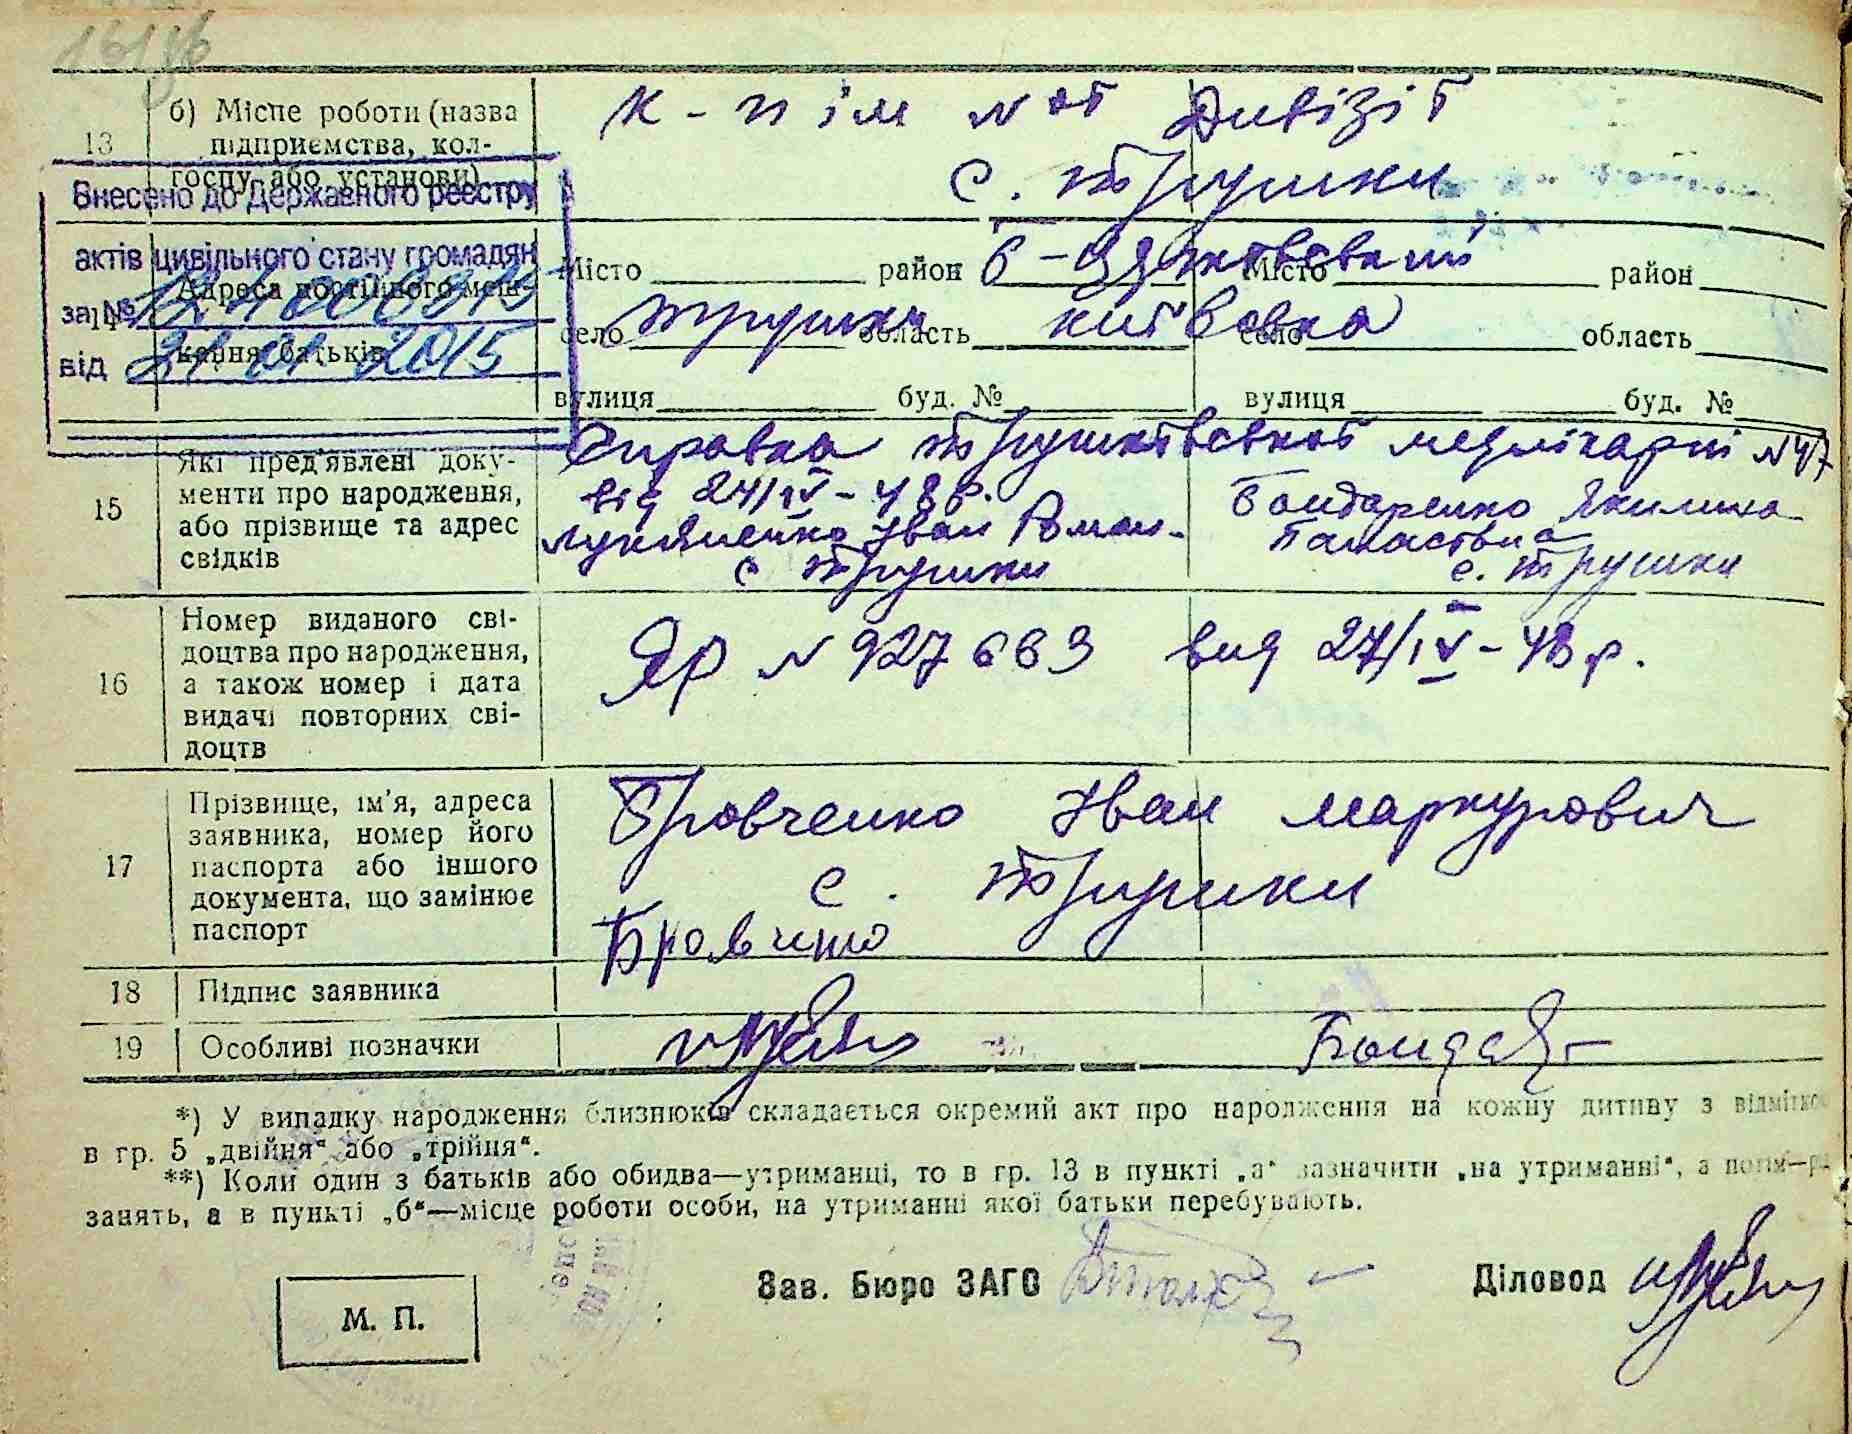 13 б) Місце роботи (назва підприємства, колгоспу або установи)
к-п ім N от Дивізії
с. Трушки
Внесено до Державного реєстру
актів цивільного стану громадян
за №
від 21.01.2015
Адреса постійного меш-
кання батьків
Місто район Б-Церковський Місто район
село Трушки область київська село область
вулиця буд. № вулиця буд. №
15 Які пред'явлені доку-
менти про народження,
або прізвище та адрес
свідків
Справка Трушківської медлікарні N 4/7
від 24/IV-48 р.
Лукяненко Іван Роман-
с Трушки
Бондаренко Якилина
с. Трушки
16 Номер виданого сві-
доцтва про народження,
а також номер і дата
видачі повторних сві-
доцтв
ЯР N 927663 від 27/IV-48 р.
17 Прізвище, ім'я, адреса
заявника, номер його
паспорта або іншого
документа, що замінює
паспорт
Бровченко Іван маркурович
с. Трушки
18 Підпис заявника
19 Особливі позначки
*) У випадку народження близнюків складається окремий акт про народження на кожну дитину з відміткою
в гр. 5 „двійня“ або „трійня“.
**) Коли один з батьків або обидва—утриманці, то в гр. 13 в пункті „а“ зазначити „на утриманні“, а потім—рід
занять, а в пункті „б“—місце роботи особи, на утриманні якої батьки перебувають.
М. П.
Зав. Бюро ЗАГС
Діловод